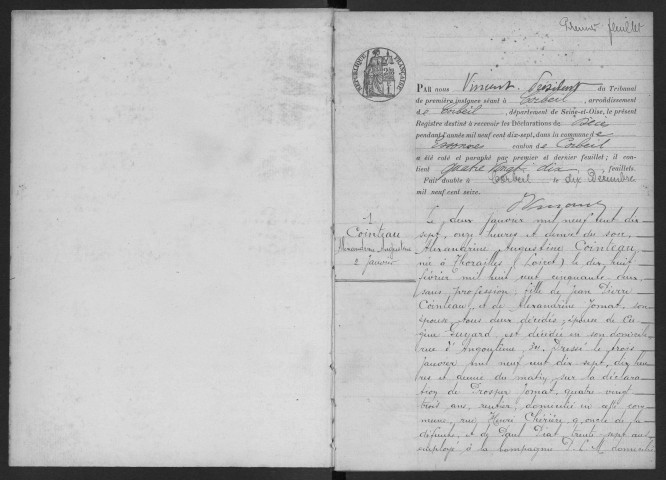 Premier feuillet
RÉPUBLIQUE FRANÇAISE
PAR nous Vincent, Président du Tribunal
de première instance séant à Corbeil, arrondissement
de Corbeil, département de Seine-et-Oise, le présent
Registre destiné à recevoir les Déclarations de Décès
pendant l'année mil neuf cent dix-sept, dans la commune de
Essonnes canton de Corbeil
a été coté et paraphé par premier et dernier feuillet; il con-
tient quatre vingt dix feuillets.
Fait double à Corbeil le dix Décembre
mil neuf cent seize.
Vincent
1
Cointeau
Alexandrine Augustine
2 Janvier
Le deux janvier mil neuf cent dix
sept, onze heures et demie du soir,
Alexandrine Augustine Cointeau,
née à Thorailles (Loiret) le dix huit
février mil huit cent cinquante deux
sans profession, fille de Jean Pierre
Cointeau, et de Alexandrine Jomat, son
épouse, tous deux décédés; épouse de Eu-
gène, est décédée en son domicile
rue d'Angoulême. Dressé le trois
janvier mil neuf cent dix sept, dix heu-
res et demie du matin, sur la déclara-
tion de Prosper Jomat, quatre vingt
trois ans, rentier, domicilié en cette com-
mune, rue Henri, oncle de la
défunte, et de Paul Diat trente sept ans
employé à la compagnie P.L.M. domicilié